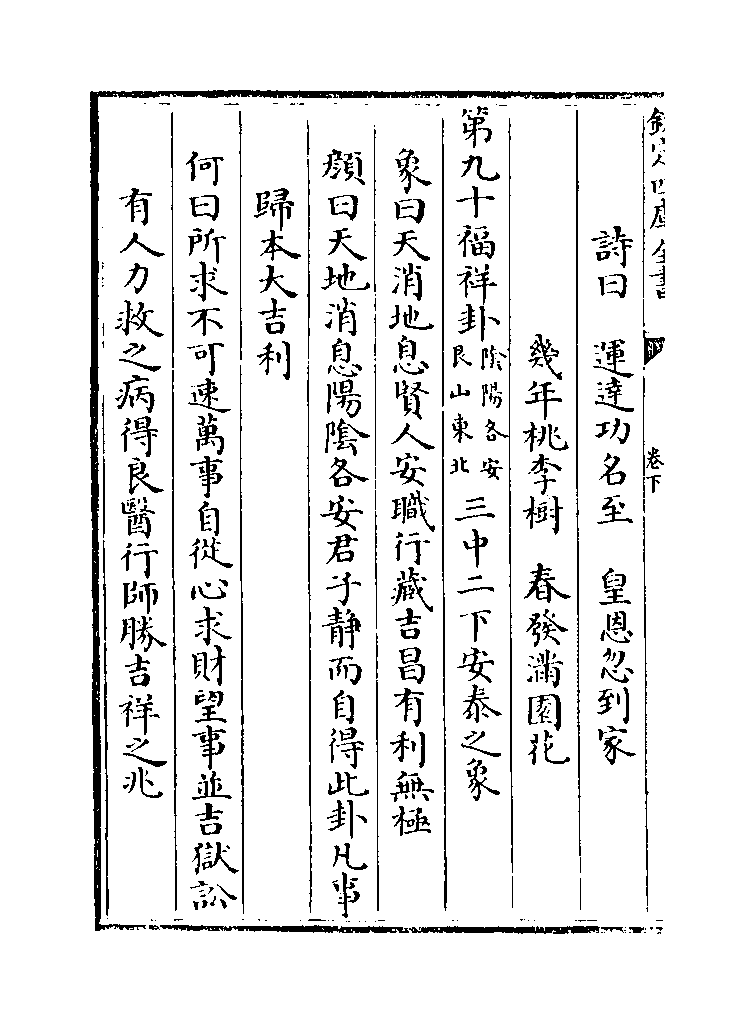 欽定四庫全書
卷下
詩曰　運達功名至　皇恩忽到家
幾年桃李樹　春發滿園花
第九十福祥卦陰陽各安艮山東北三中二下安泰之象
象曰天消地息賢人安職行藏吉昌有利無極
顔曰天地消息陽陰各安君子静而自得此卦凡事
歸本大吉利
何曰所求不可速萬事自從心求財望事並吉獄訟
有人力救之病得良醫行師勝吉祥之兆